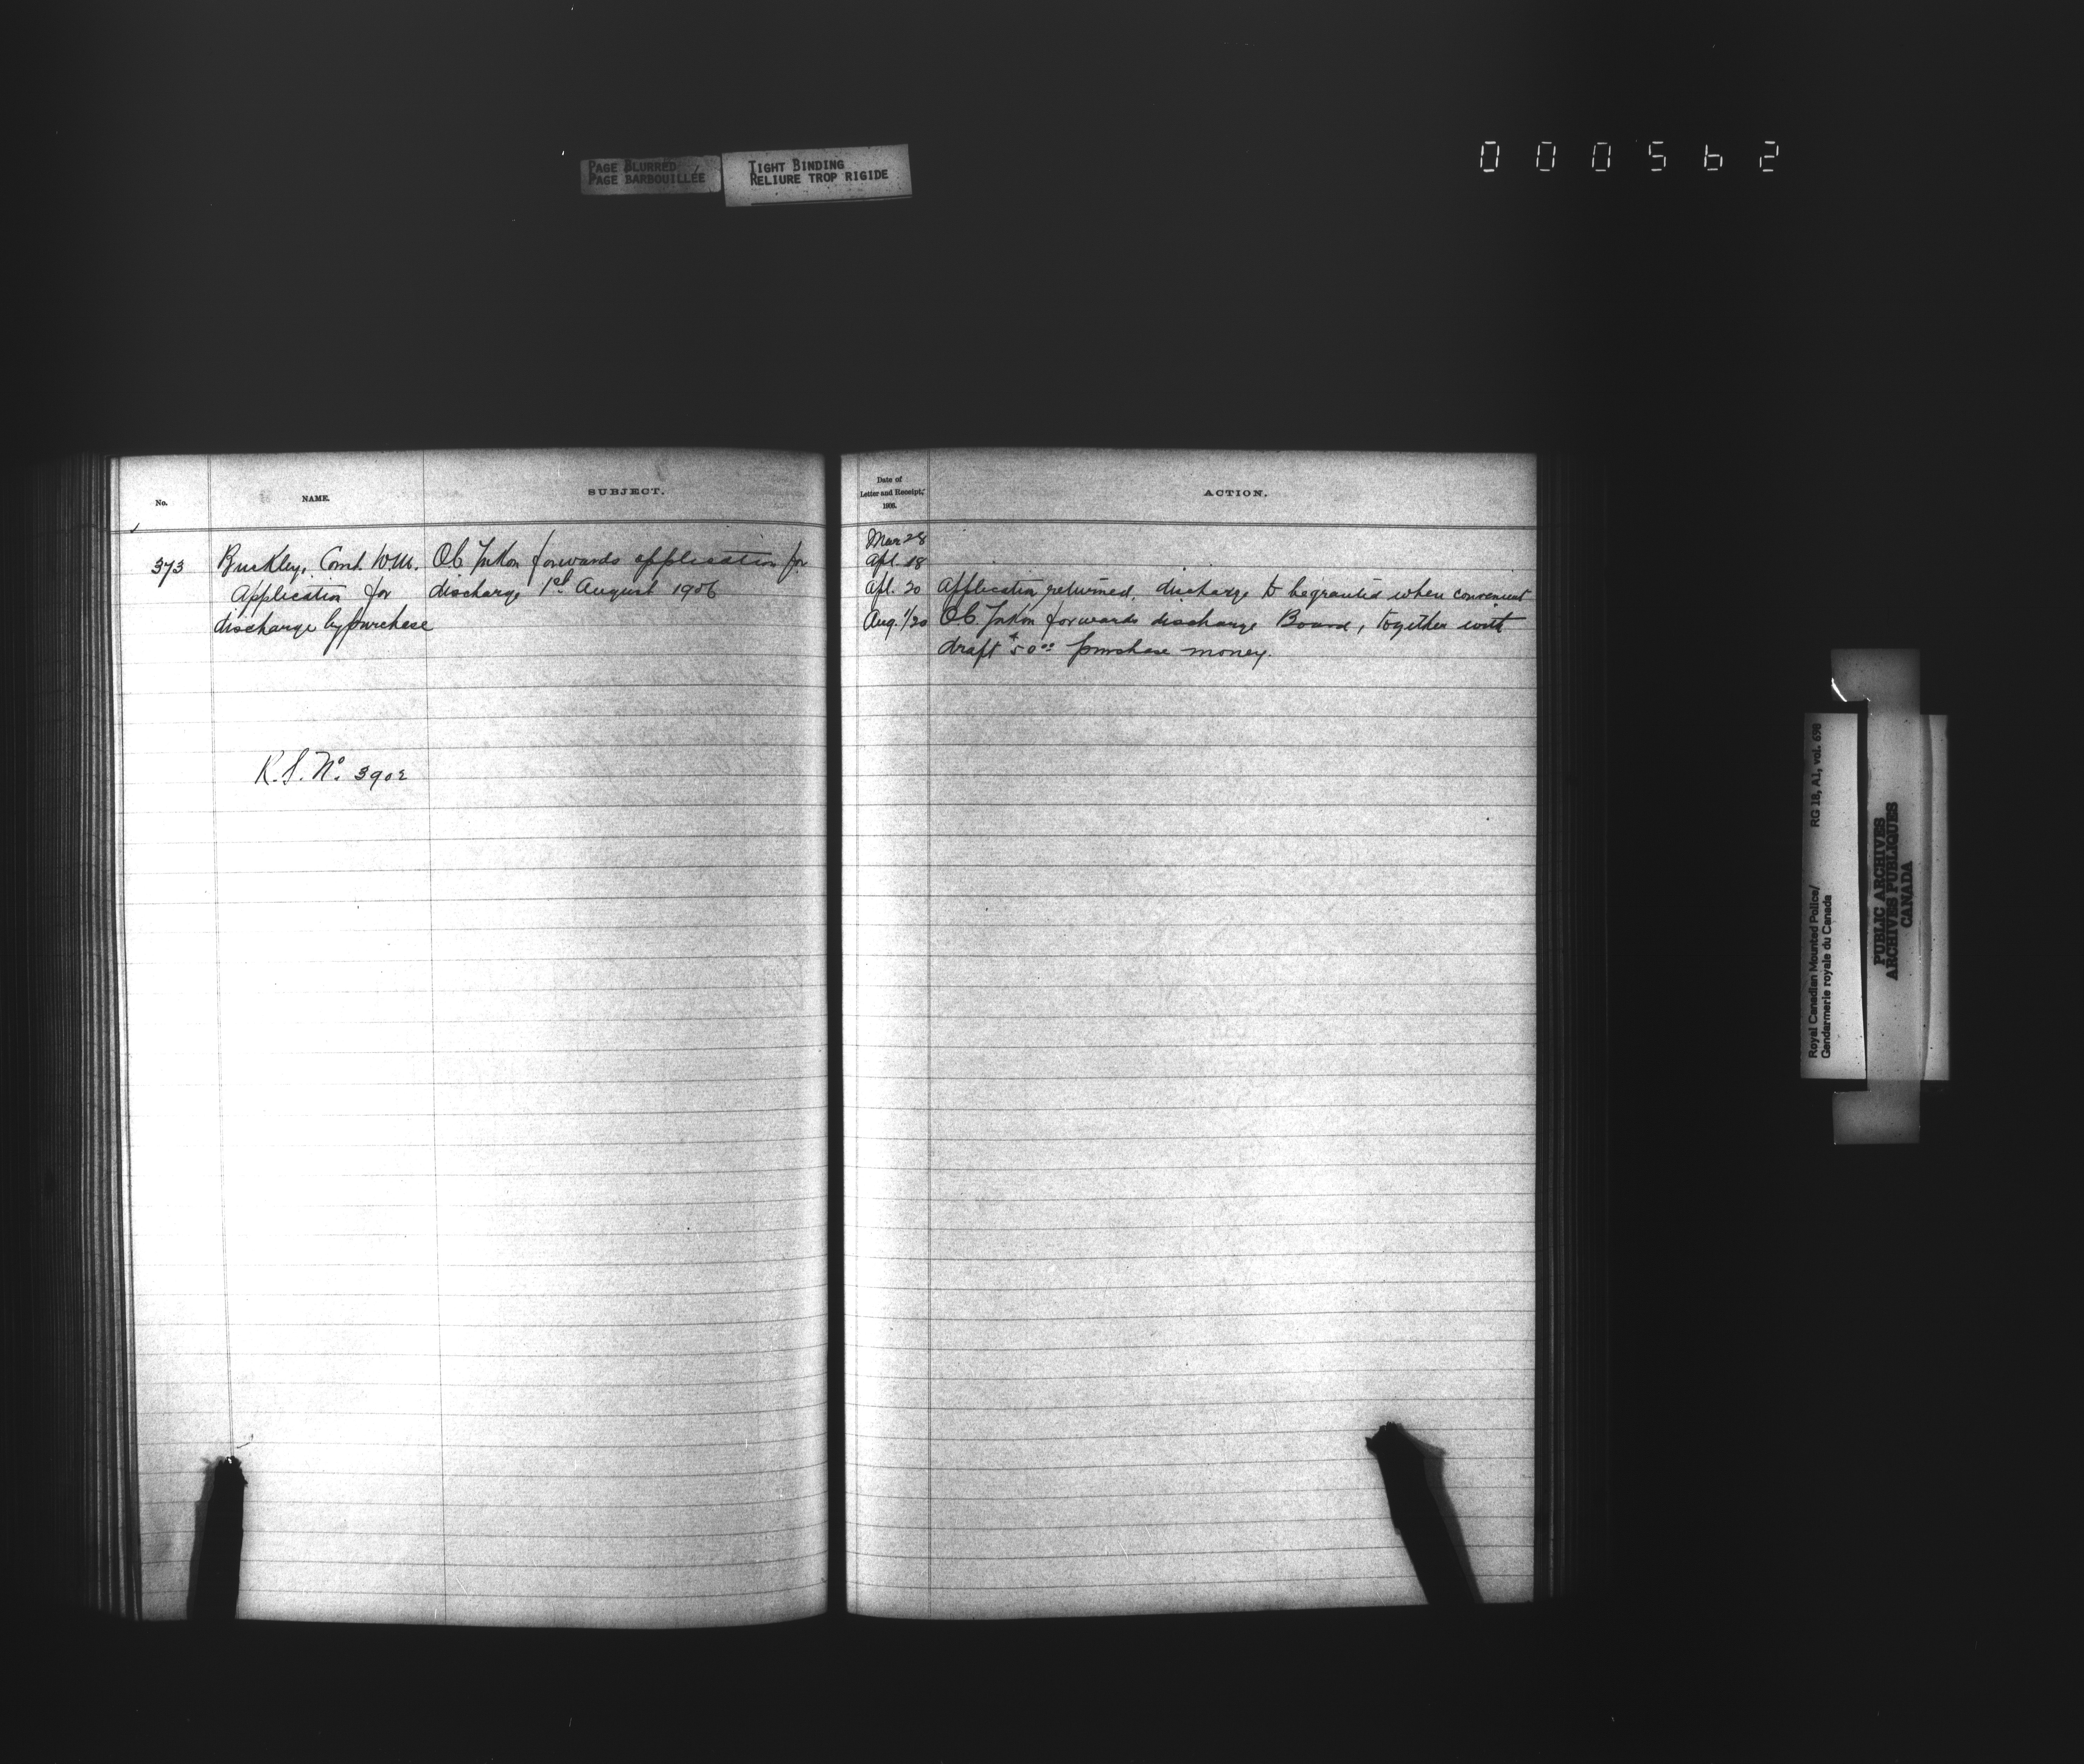 PAGE BLURRED
PAGE BARBOUILLÉE
TIGHT BINDING
RELIURE TROP RIGIDE
000562
No.
NAME.
SUBJECT.
373
Buckley, Const. W.M.
Application for
discharge by purchase
OC Yukon forwards application for
discharge 1st August 1906
R.S. No. 3902
Date of
Letter and Receipt,
1906.
ACTION.
Mar 28
Apl. 18
Apl. 20 Application returned. discharge to be granted when convenient
Aug. 1/20 OC. Yukon forwards discharge Board, together with
draft $50.00 purchase money.
Royal Canadian Mounted Police/
Gendarmerie royale du Canada
RG 18, A1, vol. 698
PUBLIC ARCHIVES
ARCHIVES PUBLIQUES
CANADA